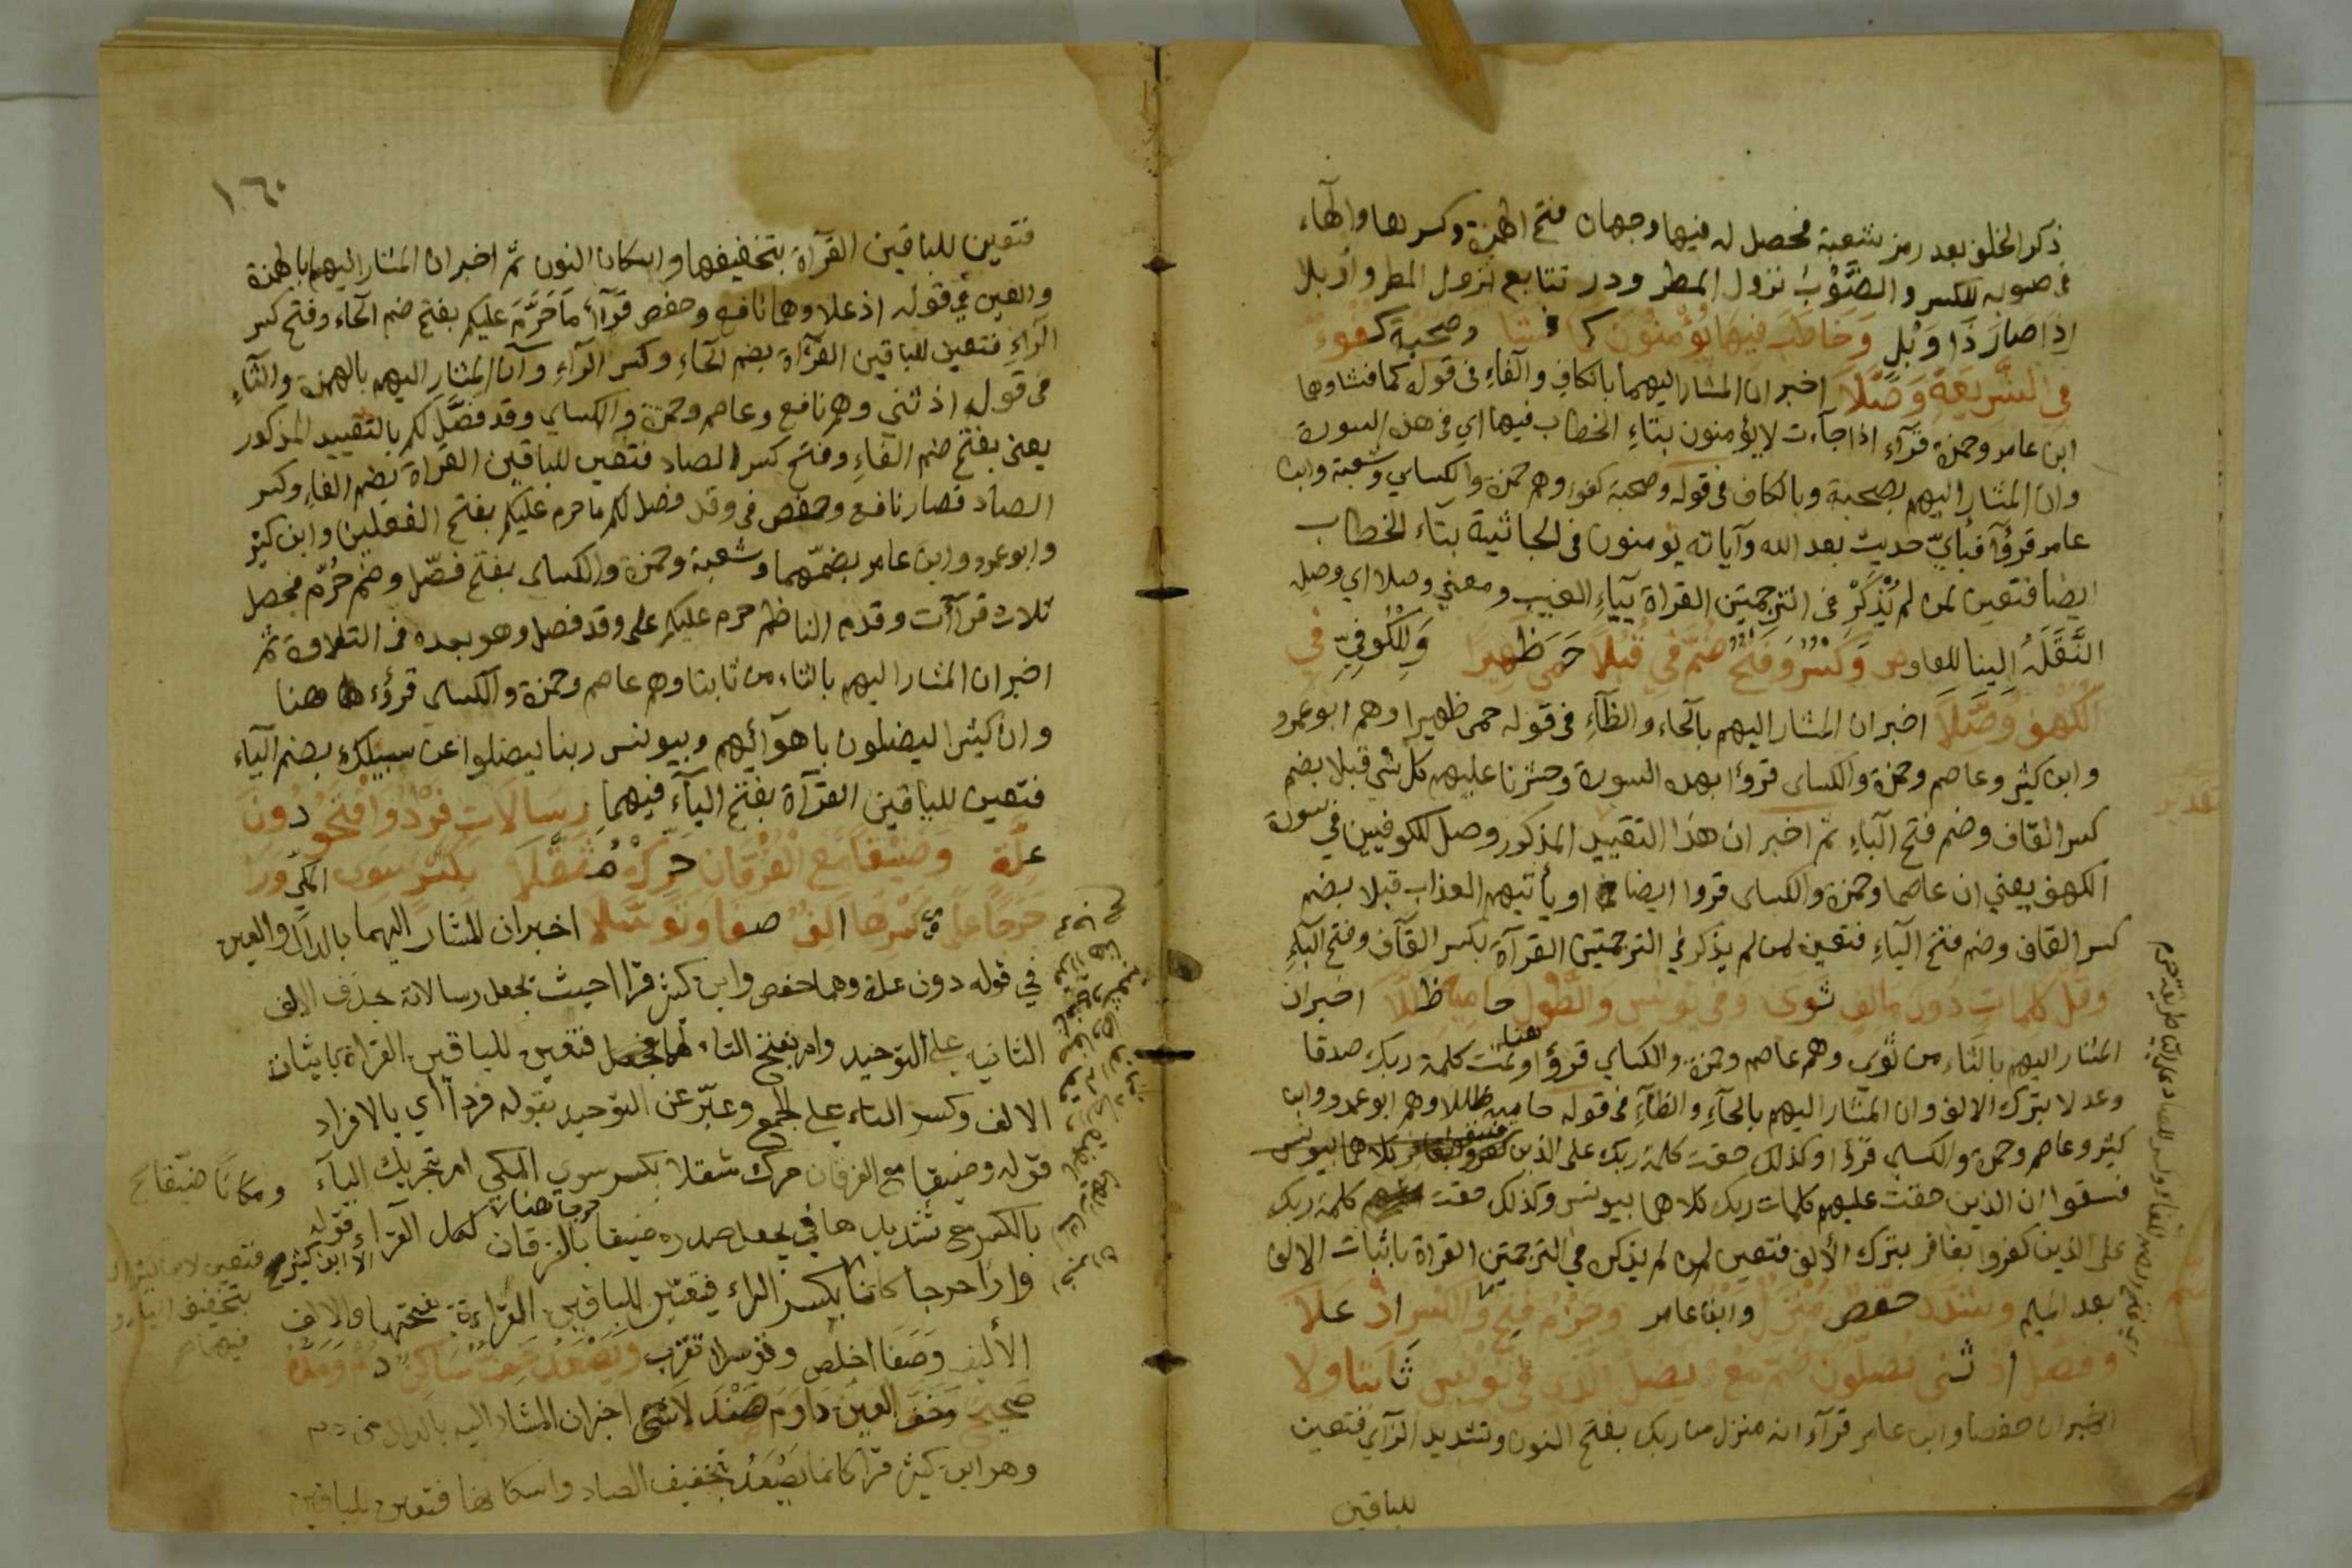 ذكر الخلف بعد رمز شعبة فحصل له فيها وجهان فتح الهمزة وكسرها والهاء
في صوبه للكسر والصَّوْبُ نزول المطر ودر تتابع نزول المطر وأربلا
اذا صَارَ ذا وَبْلٍ وَخَاطَبَ فيهَا يُؤْمِنُونَ كَمَا فَشَا وَصُحْبَةُ كفؤٍ
في الشَّرِيعَةِ وَصَّلَا اخبر ان المشار اليهما بالكافِ والفاءِ في قوله كما فشا وهما
ابن عامر وحمزة قرآء اذا جآءت لا يؤمنون بتاءِ الخطاب فيها اي في هذه السورة
وان المشار اليهم بصحبة وبالكاف في قوله وصحبة كفوء وهم حمزة والكساي وشعبة وابن
عامر قرؤآ فبأيّ حديث بعد الله وآياته تؤمنون في الجاثية بتاء الخطاب
ايضا فتعين لمن لم يُذْكَرْ في الترجمتين القراة بيآءِ الغيب ومعني وصلا اي وصله
النَّقَلَةُ الينا وَكَسْرٌ وَفَتْحٌ ضُمَّ فِي قُبُلًا حَمَى ظَهِيرًا وَلِلْكُوفِيِّ فِي
الْكَهْفِ وَصَّلَا اخبر ان المشار اليهم بالحاء والظآءِ في قوله حمى ظهيرا وهم ابوعمرو
وابن كثير وعاصم وحمزة والكساى قرؤا بهذه السورة وحشرنا عليهم كل شي قبلا بضم
كسر القاف وضم فتح الباءِ ثم اخبر ان هذا التقييد المذكور وصل للكوفيين في سورة
الكهف يعني ان عاصما وحمزة والكساى قروا ايضا او يأتيهم العذاب قبلا بضم
كسر القاف وضم فتح الباءِ فتعين لمن لم يذكر في الترجمتين القرآة بكسر القآف وفتح الباءِ
وقل كلمات دُونَ مَا الفٍ ثوى وفي يونس والطَّوْلِ حاميه ظلّلا اخبر ان
المشار اليهم بالثاء من ثوى وهم عاصم وحمزة والكساي قرؤا هنا وتمت كلمة ربك صدقا
وعدلا بترك الالف وان المشار اليهم بالحآءِ والظآءِ في قوله حاميه ظللا وهم ابوعمرو وابن
كثير وعاصم وحمزة والكساى قرؤا وكذلك حقت كلمة ربك على الذين كلاهما بيونس
فسقوا ان الذين حقت عليهم كلمات ربك كلاهما بيونس وكذلك حقت كلمة ربك
على الذين كفروا بغافر بترك الألف فتعين لمن لم يذكر في الترجمتين القراة باثبات الالف
بعد الميم وشدد حفص مُنْزَلٌ وابن عامر وحُرِّمَ فَتْحُ وَالْكَسْر اذ عَلَا
وفصل اذ ثنى يَضِلُّون ضُمَّ مَعْ يَضِلُّوا الَّذي في يُونُس ثَابتا ولا
اخبر ان حفصا وابن عامر قرآء انه منزل من ربك بفتح النون وتشديد الزآي فتعين
للباقين
١٦٠
فتعين للباقين القرآة بتخفيفها واسكان النون ثمّ اخبر ان المشار اليهما بالهمزة
والعين في قوله اذ علا وهما نافع وحفص قرآء مَا حَرَّمَ عليكم بفتح ضم الحاء وفتح كسر
الرآءِ فتعين للباقين القرآة بضم الحاءِ وكسر الرآءِ وآن المشار اليهم بالهمزة والثآءِ
في قوله اذ ثني وهم نافع وعاصم وحمزة والكساي وقد فَصَّلَ لكم بالتقييد المذكور
يعني بفتح ضم الفاءِ وفتح كسر الصاد فتعين للباقين القراة بضم الفاءِ وكسر
الصاد فصار نافع وحفص في وقد فصل لكم ما حرم عليكم بفتح الفعلين وابن كثير
وابوعمرو وابن عامر بضمّهما وشعبة وحمزة والكساى بفتح فصّل وضم حُرّم فحصل
ثلاث قرآآت وقدم الناظم حرم عليكم على وقد فصل وهو بعده في التلاوة ثم
اخبر ان المشار اليهم بالثاء من ثابتا وهم عاصم وحمزة والكساى قرؤء هنا
وان كثيرا ليضلون باهوآئهم وبيونس ربنا ليضلوا عن سبيلك بضم الياء
فتعين للباقين القرآة بفتح اليآء فيهما رِسَالَاتِ فَرْدٌ وَافْتَحُوا دُونَ
عِلَّةٍ وَضَيْقًا مَعَ الْفُرْقَانِ حَرِّكْ مُثَقَّلَا بِكَسْرٍ سِوَى الْمَكِّي وَرَا
حَرَجًا عَلَى كَسْرِهَا الفٌ صفا وَتَوَسَّلَا اخبر ان المشار اليهما بالدال والعين
في قوله دون علة وهما حفص وابن كثير قرا احيث يجعل رسالاته بحذف الالف
الثانيه على التوحيد وامر بفتح التاء لهما فتعين للباقين القراة باثبات
الالف وكسر التاء على الجمع وعبّر عن التوحيد بقوله فردآ اي بالافراد
قوله وضيقا مع الفرقان حرك مثقلا بكسر سوى المكي امر بتحريك اليآء
بالكسر مع تشديدها في يجعل صدره ضيقا حرجا هنا بالفرقان لكل القراء الا ابن كثير قوله
ورا حرجا بكسر الراء فتعين للباقين القراءة بفتحها والالف
الأليف وَصَفَا اخلص وتوسل تقرب وَيَصْعَدُ خِفٌّ سَاكِنٌ دُمْ وَمَدُّهُ
صَحِيحٌ وَخِفُّ العَيْنِ دَاوَمَ صَنْدَلَا اخبر ان المشار اليه بالدال من دم
وهو ابن كثير قرا كانما يَصْعَدُ بتخفيف الصاد واسكانها فتعين للباقين
ومكانًا ضيّقا
بتخفيف الياء